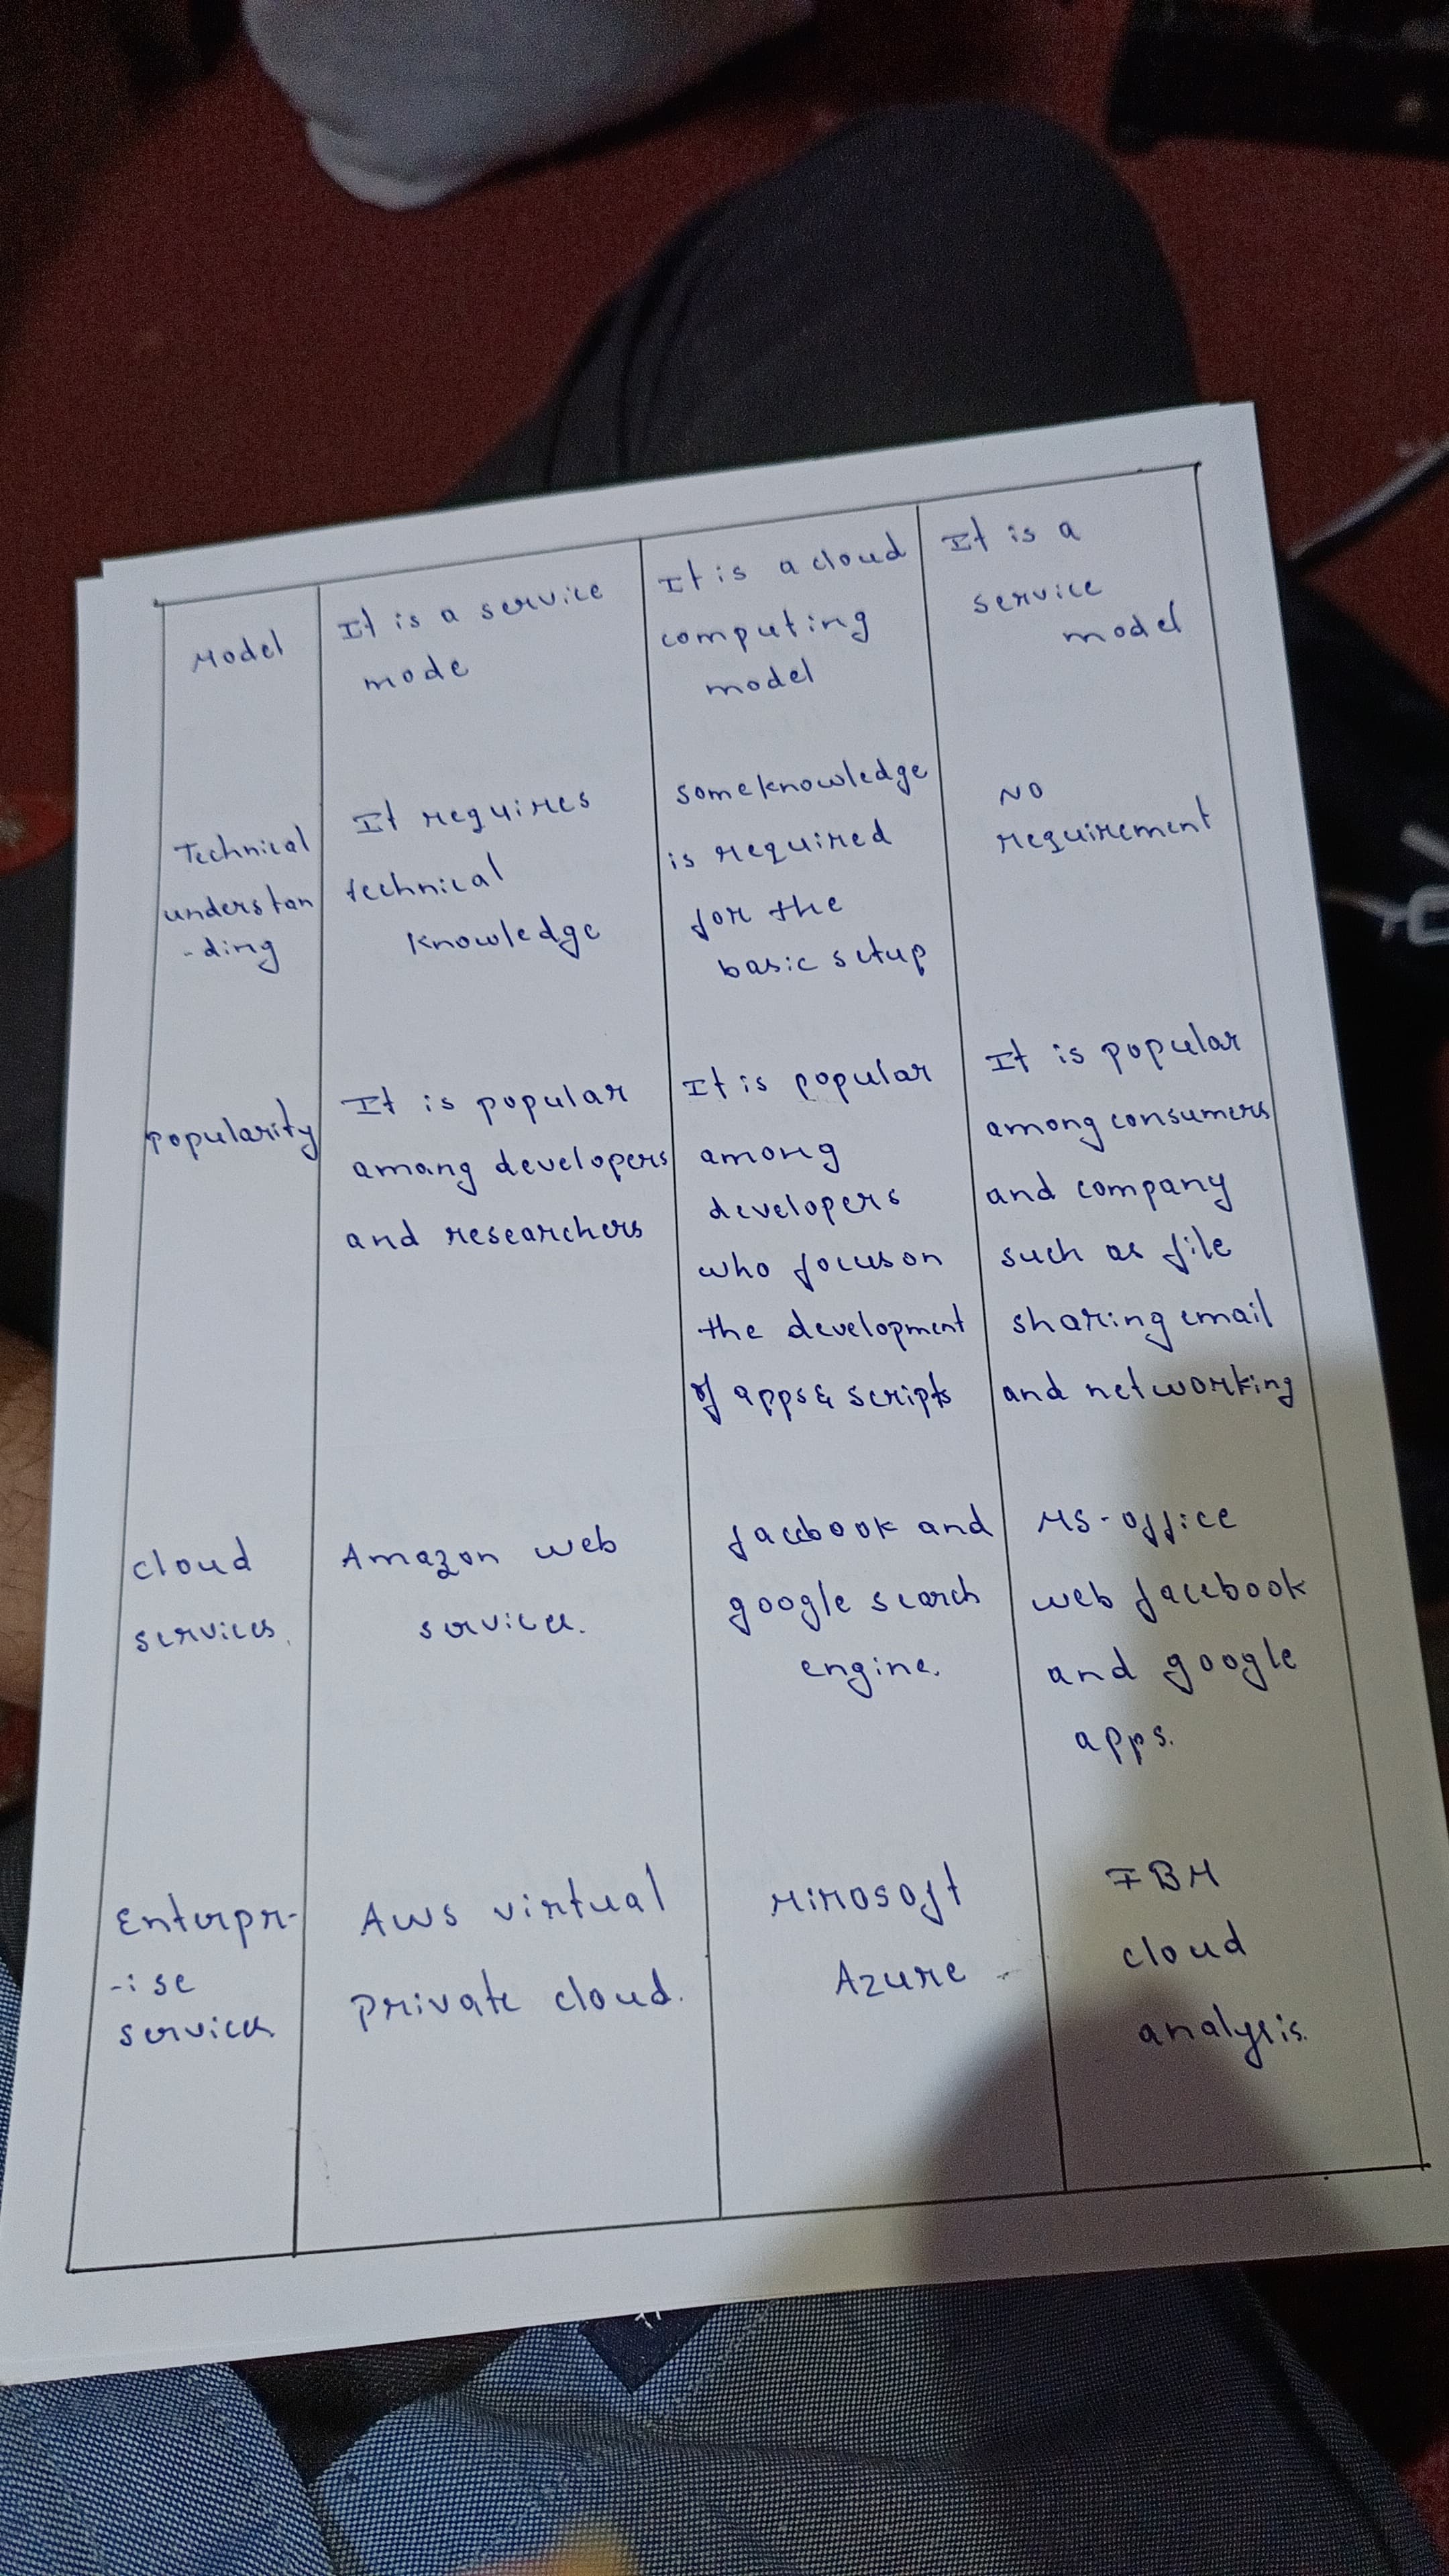 Model
It is a service
mode
It is a cloud
computing
model
It is a
service
model
Technical
understan
-ding
It requires
technical
knowledge
some knowledge
is required
for the
basic setup
NO
requirement
popularity
It is popular
among developers
and researchers
It is popular
among
developers
who focus on
the development
of apps & scripts
It is popular
among consumers
and company
such as file
sharing email
and networking
cloud
services.
Amazon web
service.
facebook and
google search
engine.
MS-office
web facebook
and google
apps.
Enterpr-
-ise
services
AWS virtual
private cloud.
Mirosoft
Azure
IBM
cloud
analysis.